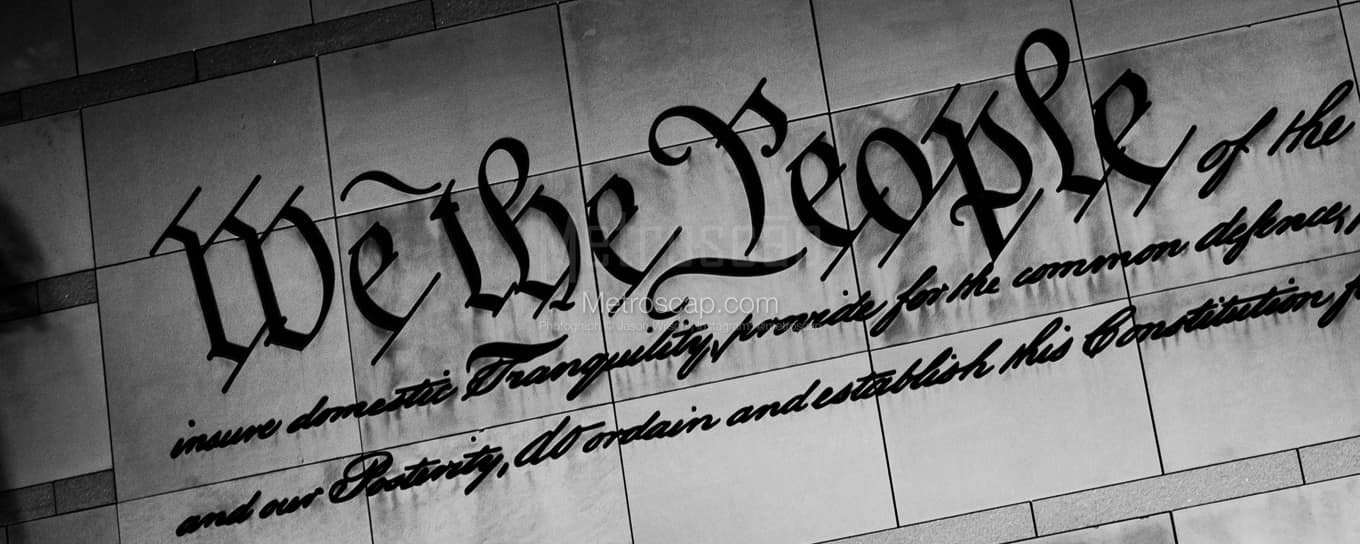 We the People of the
insure domestic Tranquility, provide for the common defence,
and our Posterity, do ordain and establish this Constitution
Metroscap.com
Metroscap